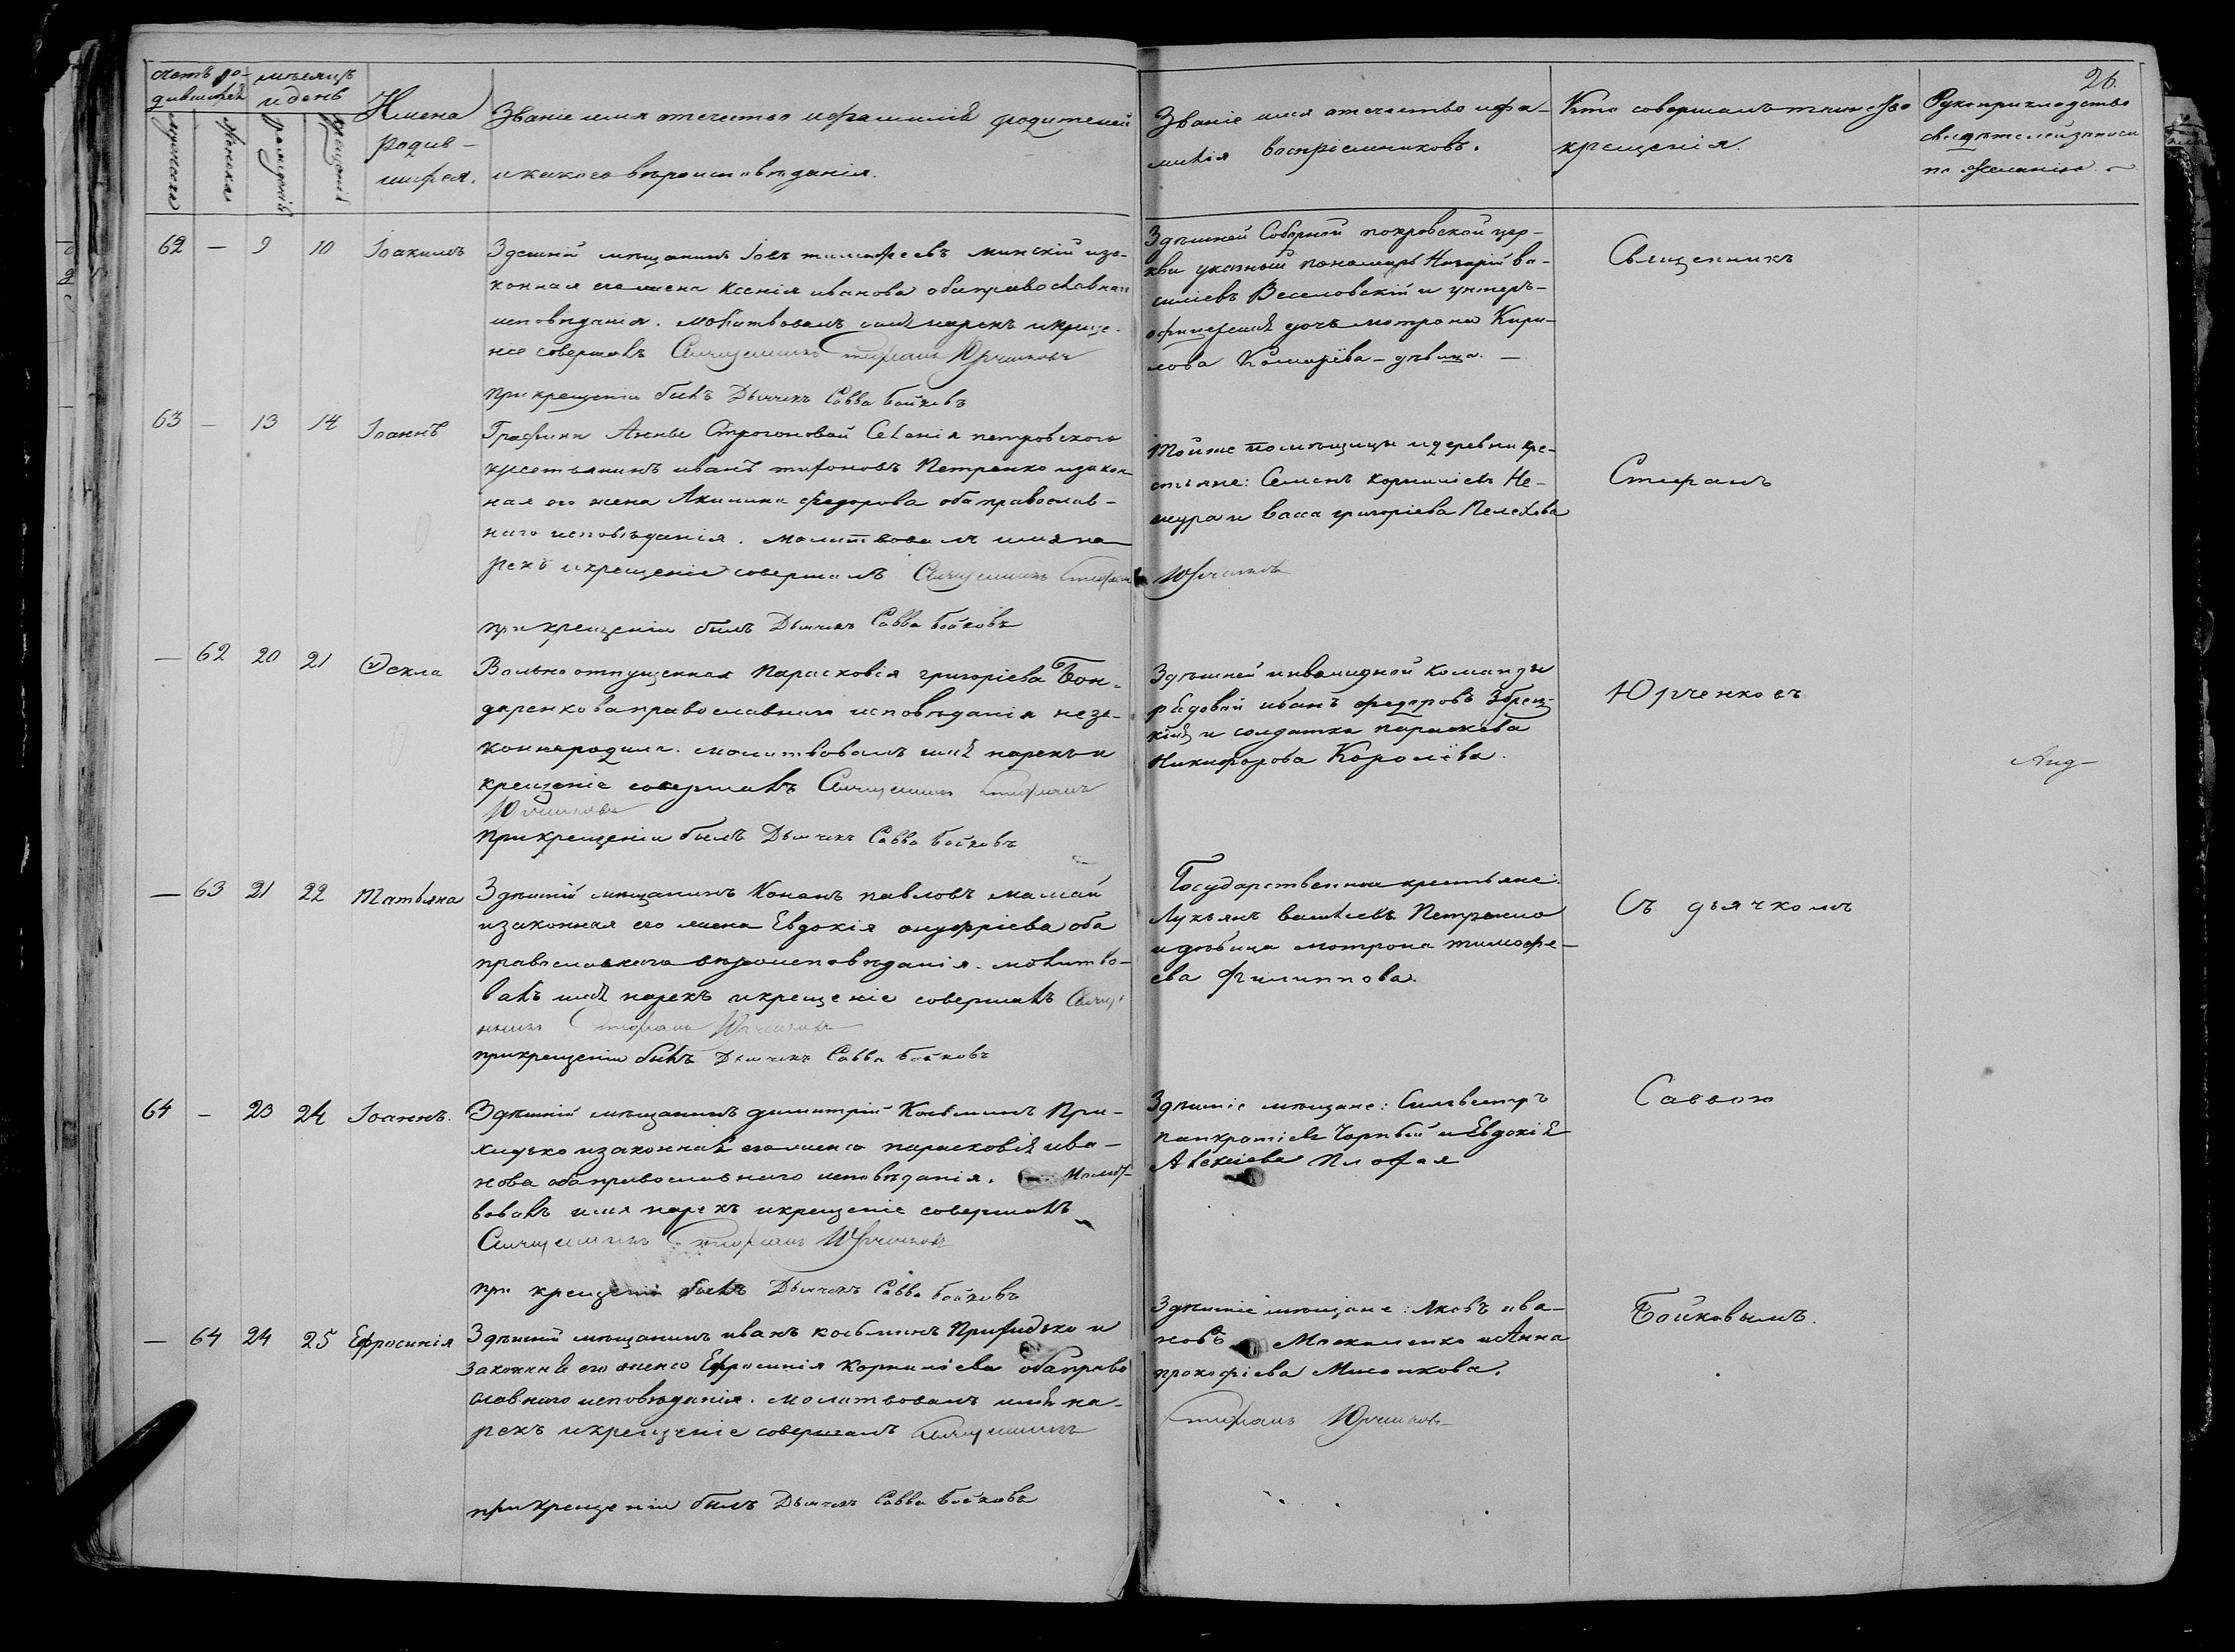 26.
счетъ ро-
дившихся
мѣсяцъ
и день
Имена
родив-
шихся.
мужеска
женска
рожденія
крещенія
Званіе имя отечество и фамилія родителей
и какого вѣроисповѣданія.
Званіе имя отечество и фа-
милія воспріемниковъ.
Кто совершалъ таинство
крещенія.
Рукоприкладство
свидѣтелей записи
по желанію.
62 — 9 10 Іоакимъ
Здешній мѣщанинъ Іовъ тимофеевъ минскій иза-
конная его жена Ксенія иванова оба православнаго
исповѣданія. молитвовалъ имя нарекъ и креще-
ніе совершалъ Священникъ Стефанъ Юрченковъ
при крещеніи былъ Дьячекъ Савва Бойковъ
Здѣшней Соборной покровской цер-
кви указный пономарь Назарій ва-
силіевъ Веселовскій и унтеръ-
офицерская дочь мотрона Кири-
лова Комарёва - дѣвица. —
Священникъ
63 — 13 14 Іоаннъ
Графини Анны Строгоновой Селенія петровского
крестьянинъ иванъ тифоновъ Петренко и закон-
ная его жена Акилина федорова оба православ-
наго исповѣданія. молитвовалъ имя на-
рекъ и крещеніе совершалъ Священникъ Стефанъ
Юрченковъ
при крещеніи былъ Дьячекъ Савва Бойковъ
Той же помѣщицы и деревни кре-
стьяне: Семенъ корниліевъ Не-
жура и васса григоріева Пелехова
Стефанъ
— 62 20 21 Ѳекла
Вольноотпущенная Парасковія григоріева Бон-
даренкова православнаго исповѣданія неза-
коннародила. молитвовалъ имя нарекъ и
крещеніе совершалъ Священникъ Стефанъ
Юрченковъ
при крещеніи былъ Дьячекъ Савва Бойковъ
Здѣшней инвалидной команды
рядовой иванъ федоровъ Збрец-
кій и солдатка параскева
Никифорова Королёва.
Юрченковъ
— 63 21 22 Татьяна
Здѣшній мѣщанинъ Кононъ павловъ мамай
и законная его жена Евдокія онуфріева оба
православнаго вѣроисповѣданія. молитво-
валъ имя нарекъ и крещеніе совершалъ Свяще-
нникъ Стефанъ Юрченковъ
при крещеніи былъ Дьячекъ Савва Бойковъ
Государственные крестьяне:
Лукьянъ васильевъ Петренко
и дѣвица мотрона тимофе-
ева Филиппова.
Съ дьячкомъ
64 — 23 24 Іоаннъ.
Здѣшній мѣщанинъ димитрій Козьминъ При-
хидько и законная его жена парасковія ива-
нова оба православнаго исповѣданія. молит-
вовалъ имя нарекъ и крещеніе совершалъ
Священникъ Стефанъ Юрченковъ
при крещеніи былъ Дьячекъ Савва Бойковъ
Здѣшніе мѣщане: Сильвестръ
панкратіевъ Чорный и Евдокія
Алексіева Плохая
Саввою
— 64 24 25 Ефросинія
Здѣшній мѣщанинъ иванъ козьминъ Прихидько и
законная его жена Ефросинія Корниліева оба право
славнаго исповѣданія. молитвовалъ имя на-
рекъ и крещеніе совершалъ Священникъ
Стефанъ Юрченковъ
при крещеніи былъ Дьячекъ Савва Бойковъ
Здѣшніе мѣщане: Яковъ ива-
новъ Москаленко и Анна
прокофіева Мисникова.
Бойковымъ.